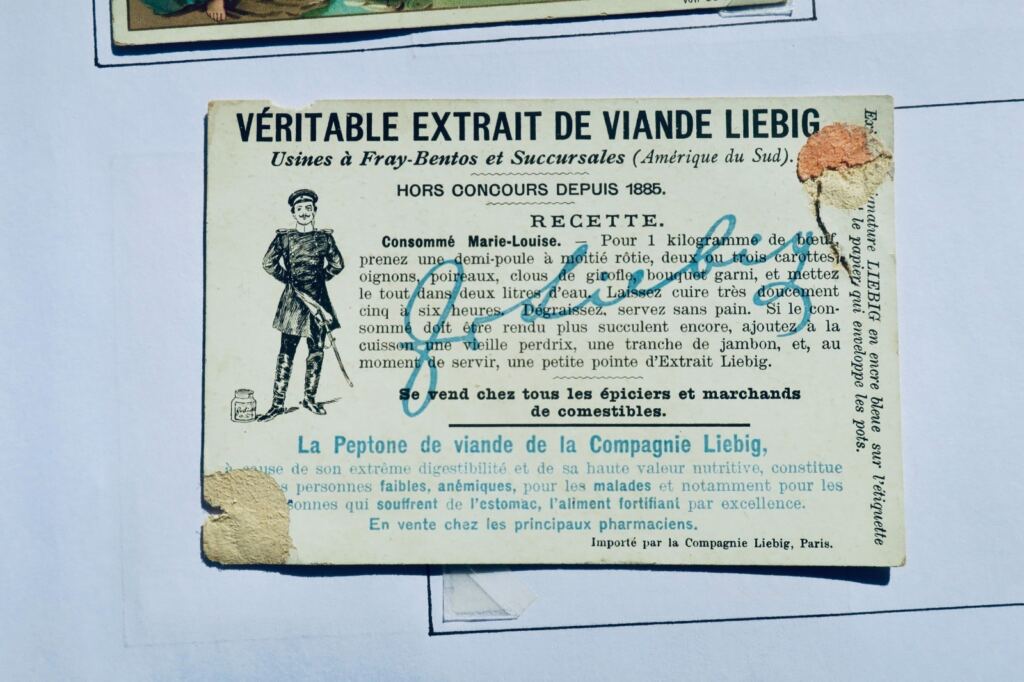 VÉRITABLE EXTRAIT DE VIANDE LIEBIG
Usines à Fray-Bentos et Succursales (Amérique du Sud).
HORS CONCOURS DEPUIS 1885.
RECETTE.
Consommé Marie-Louise. — Pour 1 kilogramme de bœuf,
prenez une demi-poule à moitié rôtie, deux ou trois carottes,
oignons, poireaux, clous de girofle, bouquet garni, et mettez
le tout dans deux litres d'eau. Laissez cuire très doucement
cinq à six heures. Dégraissez, servez sans pain. Si le con-
sommé doit être rendu plus succulent encore, ajoutez à la
cuisson une vieille perdrix, une tranche de jambon, et, au
moment de servir, une petite pointe d'Extrait Liebig.
Se vend chez tous les épiciers et marchands
de comestibles.
La Peptone de viande de la Compagnie Liebig,
à cause de son extrême digestibilité et de sa haute valeur nutritive, constitue
personnes faibles, anémiques, pour les malades et notamment pour les
qui souffrent de l'estomac, l'aliment fortifiant par excellence.
En vente chez les principaux pharmaciens.
Importé par la Compagnie Liebig, Paris.
LIEBIG en encre bleue sur l'étiquette
le papier qui enveloppe les pots.